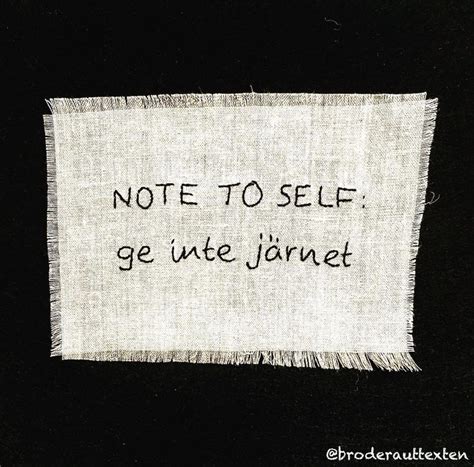 NOTE TO SELF:
ge inte järnet
@broderauttexten